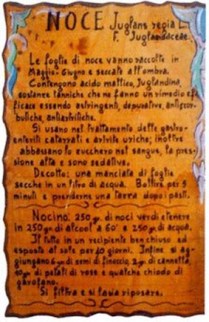 NOCE Juglans regia L.
F. Juglandaceae
Le foglie di noce vanno raccolte in
Maggio-Giugno e seccate all'ombra.
Contengono acido mattico, Juglandina,
sostanze tanniche che ne fanno un rimedio ef
ficace essendo astringenti, depurative, antiscor-
butiche, antiastritiche.
Si usano nel trattamento delle gastro-
enteriti catarrali e artrite uriche; inoltre
abbassano lo zucchero nel sangue, la pres-
sione alta e sono sedative.
Decotto: una manciata di foglie
secche in un litro di acqua. Bollire per 5
minuti e prenderne una tazza dopo i pasti.
Nocino: 250 gr. di noci verdi e tenere
in 250 gr di alcool a 60° e 250 gr di acqua.
Il tutto in un recipiente ben chiuso ed
esposto al sole per 40 giorni. Infine si ag-
giungono 6 gr di semi di finocchio, 2 gr di cannella,
40 gr di petali di rose e qualche chiodo di
garofano.
Si filtra e si lascia riposare.